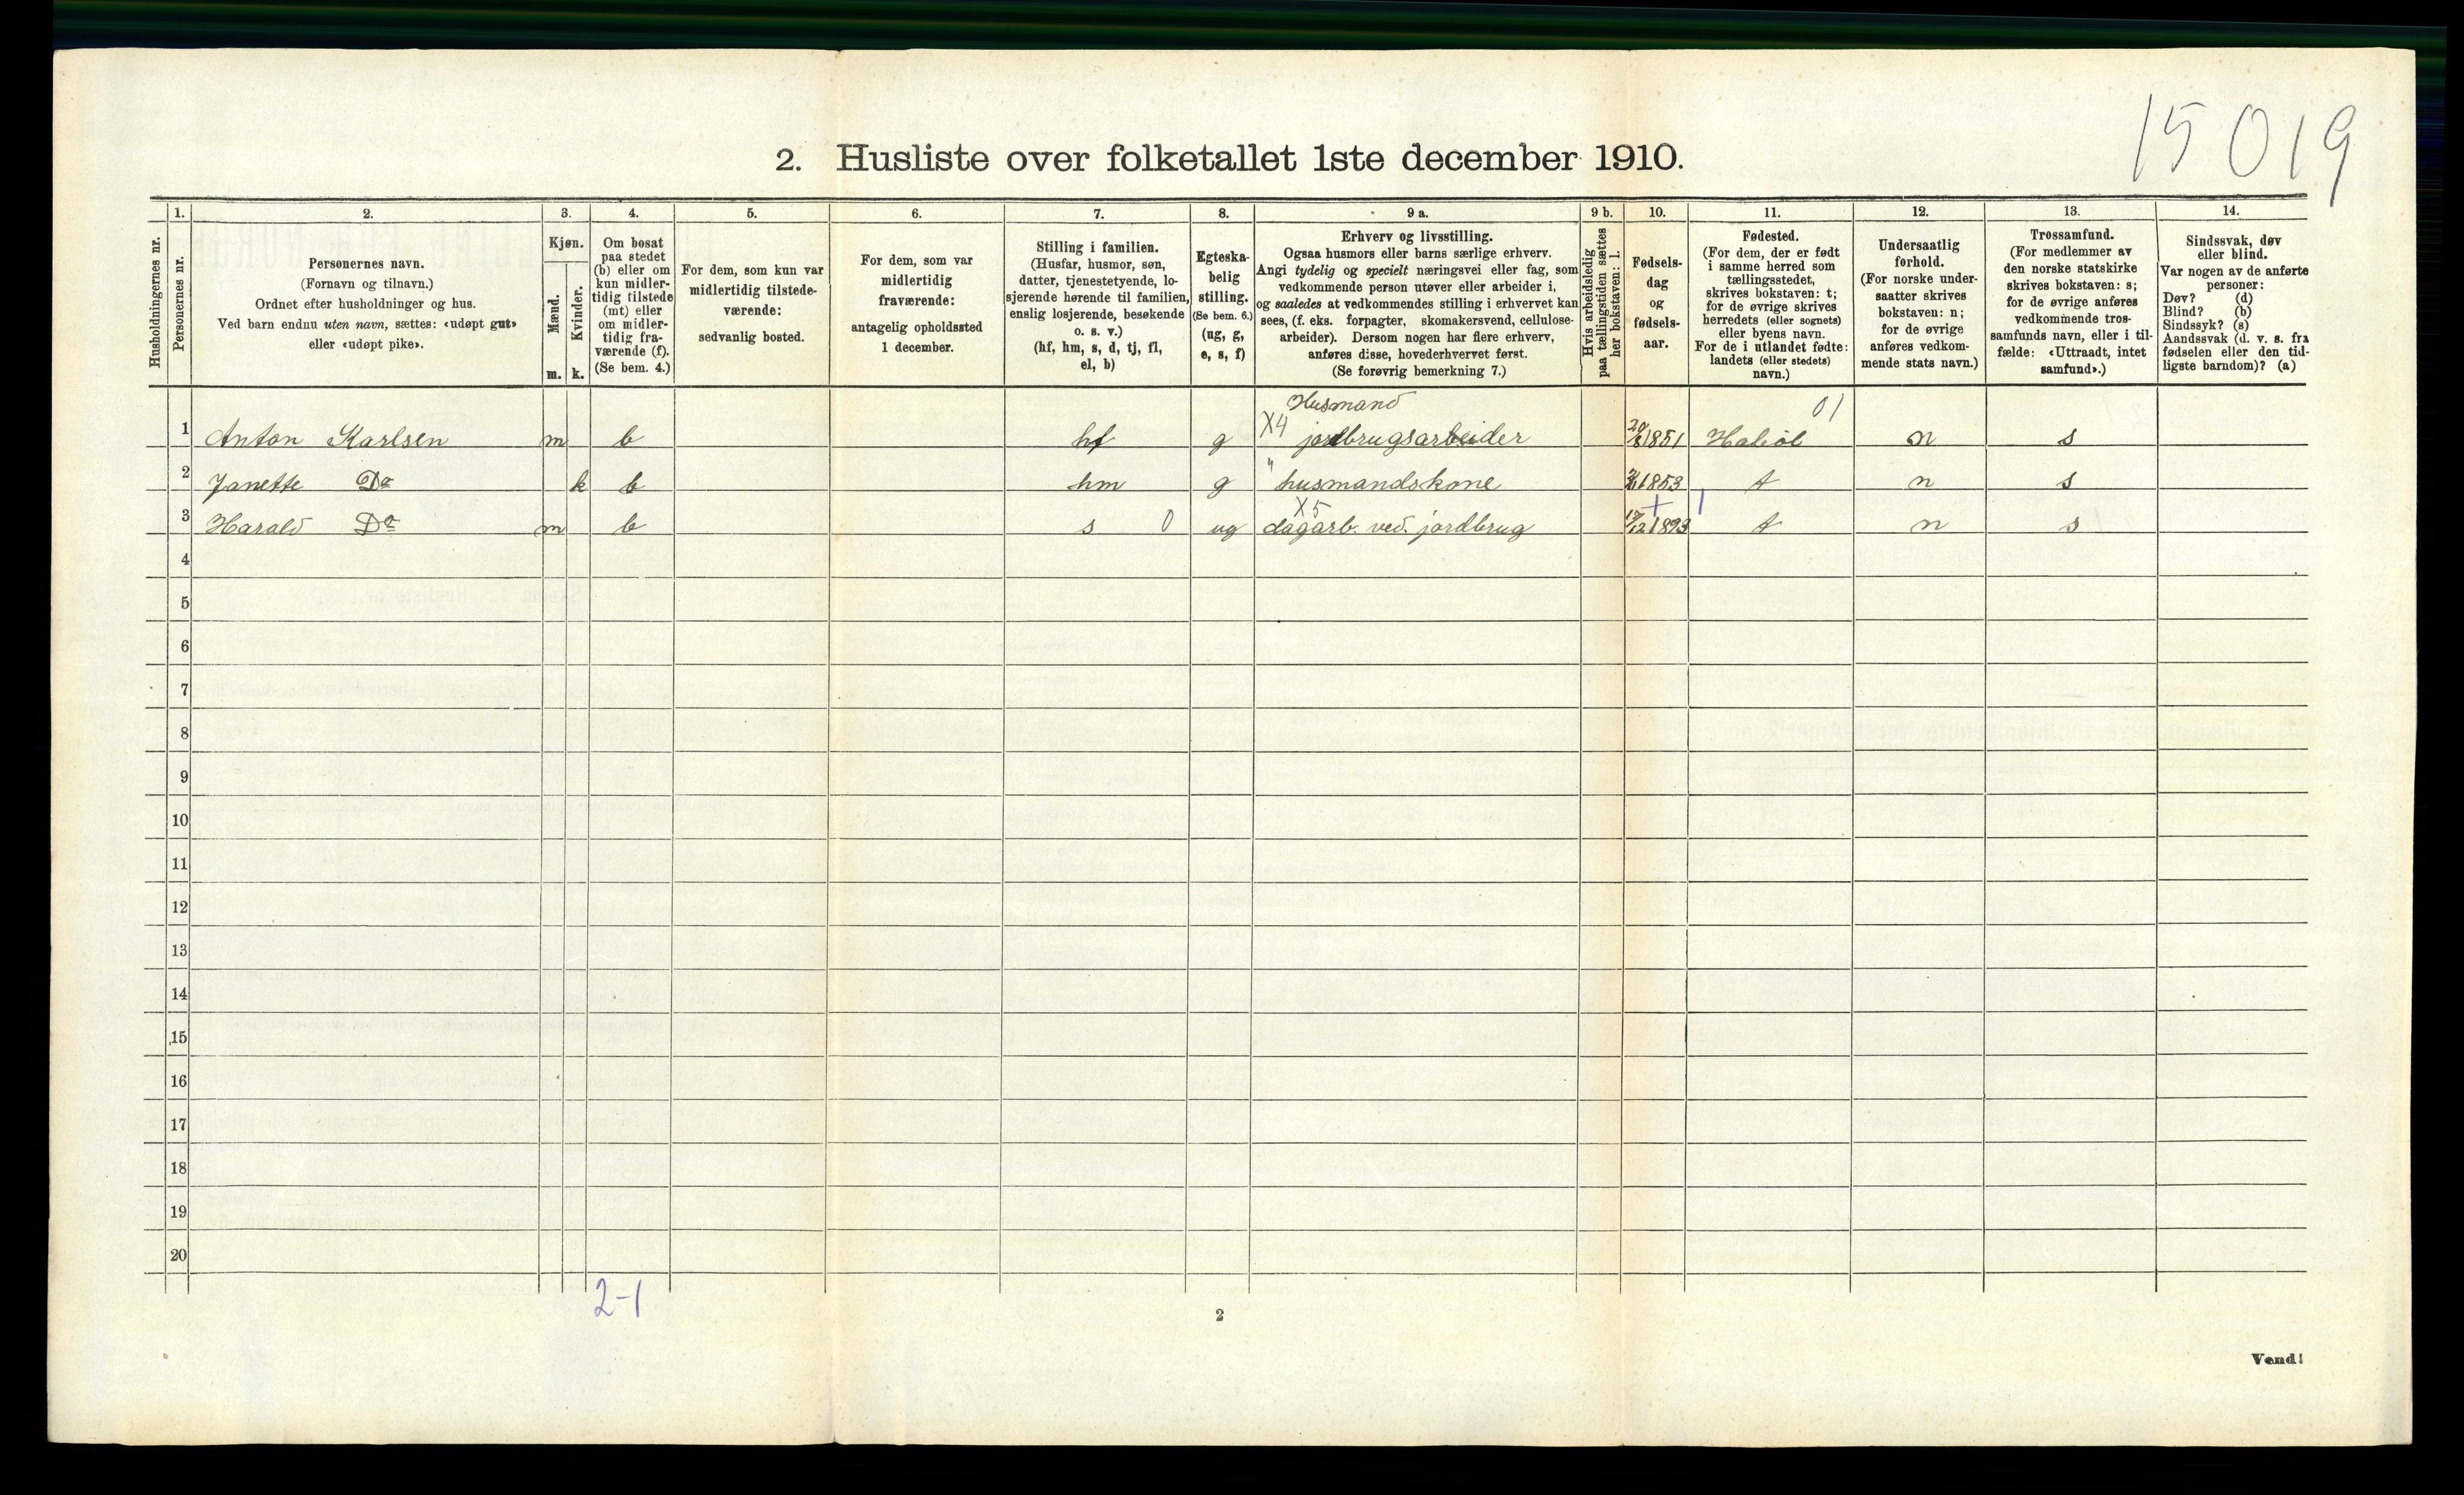 15019
2. Husliste over folketallet 1ste december 1910.
1. 2. 3. 4. 5. 6. 7. 8. 9 a. 9 b. 10. 11. 12. 13. 14.
Husholdningernes nr.
Personernes nr.
Personernes navn.
(Fornavn og tilnavn.)
Ordnet efter husholdninger og hus.
Ved barn endnu uten navn, sættes: «udøpt gut»
eller «udøpt pike».
Kjøn.
Mænd.
Kvinder.
m. k.
Om bosat
paa stedet
(b) eller om
kun midler-
tidig tilstede
(mt) eller
om midler-
tidig fra-
værende (f).
(Se bem. 4.)
For dem, som kun var
midlertidig tilstede-
værende:
sedvanlig bosted.
For dem, som var
midlertidig
fraværende:
antagelig opholdssted
1 december.
Stilling i familien.
(Husfar, husmor, søn,
datter, tjenestetyende, lo-
sjerende hørende til familien,
enslig losjerende, besøkende
o. s. v.)
(hf, hm, s, d, tj, fl,
el, b)
Egteska-
belig
stilling.
(Se bem. 6.)
(ug, g,
e, s, f)
Erhverv og livsstilling.
Ogsaa husmors eller barns særlige erhverv.
Angi tydelig og specielt næringsvei eller fag, som
vedkommende person utøver eller arbeider i,
og saaledes at vedkommendes stilling i erhvervet kan
sees, (f. eks. forpagter, skomakersvend, cellulose-
arbeider). Dersom nogen har flere erhverv,
anføres disse, hovederhvervet først.
(Se forøvrig bemerkning 7.)
Hvis arbeidsledig
paa tællingstiden sættes
her bokstaven: l.
Fødsels-
dag
og
fødsels-
aar.
Fødested.
(For dem, der er født
i samme herred som
tællingsstedet,
skrives bokstaven: t;
for de øvrige skrives
herredets (eller sognets)
eller byens navn.
For de i utlandet fødte:
landets (eller stedets)
navn.)
Undersaatlig
forhold.
(For norske under-
saatter skrives
bokstaven: n;
for de øvrige
anføres vedkom-
mende stats navn.)
Trossamfund.
(For medlemmer av
den norske statskirke
skrives bokstaven: s;
for de øvrige anføres
vedkommende tros-
samfunds navn, eller i til-
fælde: «Uttraadt, intet
samfund».)
Sindssvak, døv
eller blind.
Var nogen av de anførte
personer:
Døv? (d)
Blind? (b)
Sindssyk? (s)
Aandssvak (d. v. s. fra
fødselen eller den tid-
ligste barndom)? (a)
Husmand 01
1 Anton Karlsen m b hf g X4 jordbrugsarbeider 1851 n s
2 Janette Do k b hm g " husmandskone 1853 t n s
X5 + 1
3 Harald Do m b s 0 ug dagarb. ved. jordbrug 1893 t n s
4
5
6
7
8
9
10
11
12
13
14
15
16
17
18
19
20
2-1
2
Vend!